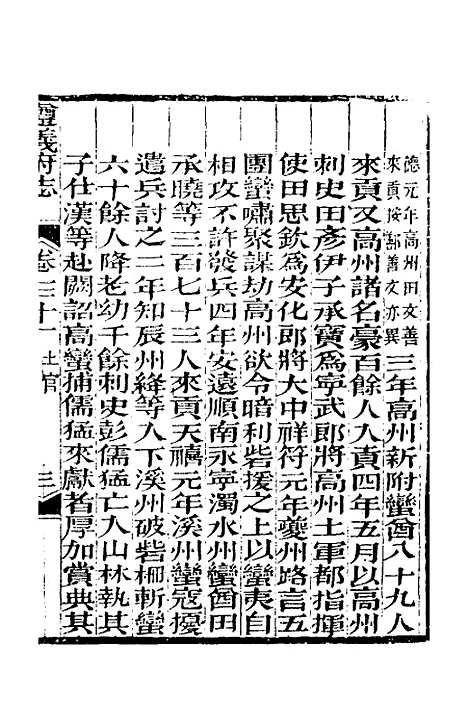 德元年高州田文善
來貢按鄯善文亦異
三年高州新附蠻酋八十九人
來貢又高州諸名豪百餘人入貢四年五月以高州
刺史田彥伊子承寶爲寧武郎將高州土軍都指揮
使田思欽爲安化郎將大中祥符元年夔州路言五
團蠻嘯聚謀劫高州欲令暗利砦援之上以蠻夷自
相攻不許發兵四年安遠順南永寧濁水州蠻酋田
承曉等三百七十三人來貢天禧元年溪州蠻寇擾
遣兵討之二年知辰州絳等入下溪州破砦柵斬蠻
六十餘人降老幼千餘刺史彭儒猛亡入山林執其
子仕漢等赴闕詔高蠻捕儒猛來獻者厚加賞典其
遵義府志
卷三十一 土官 三